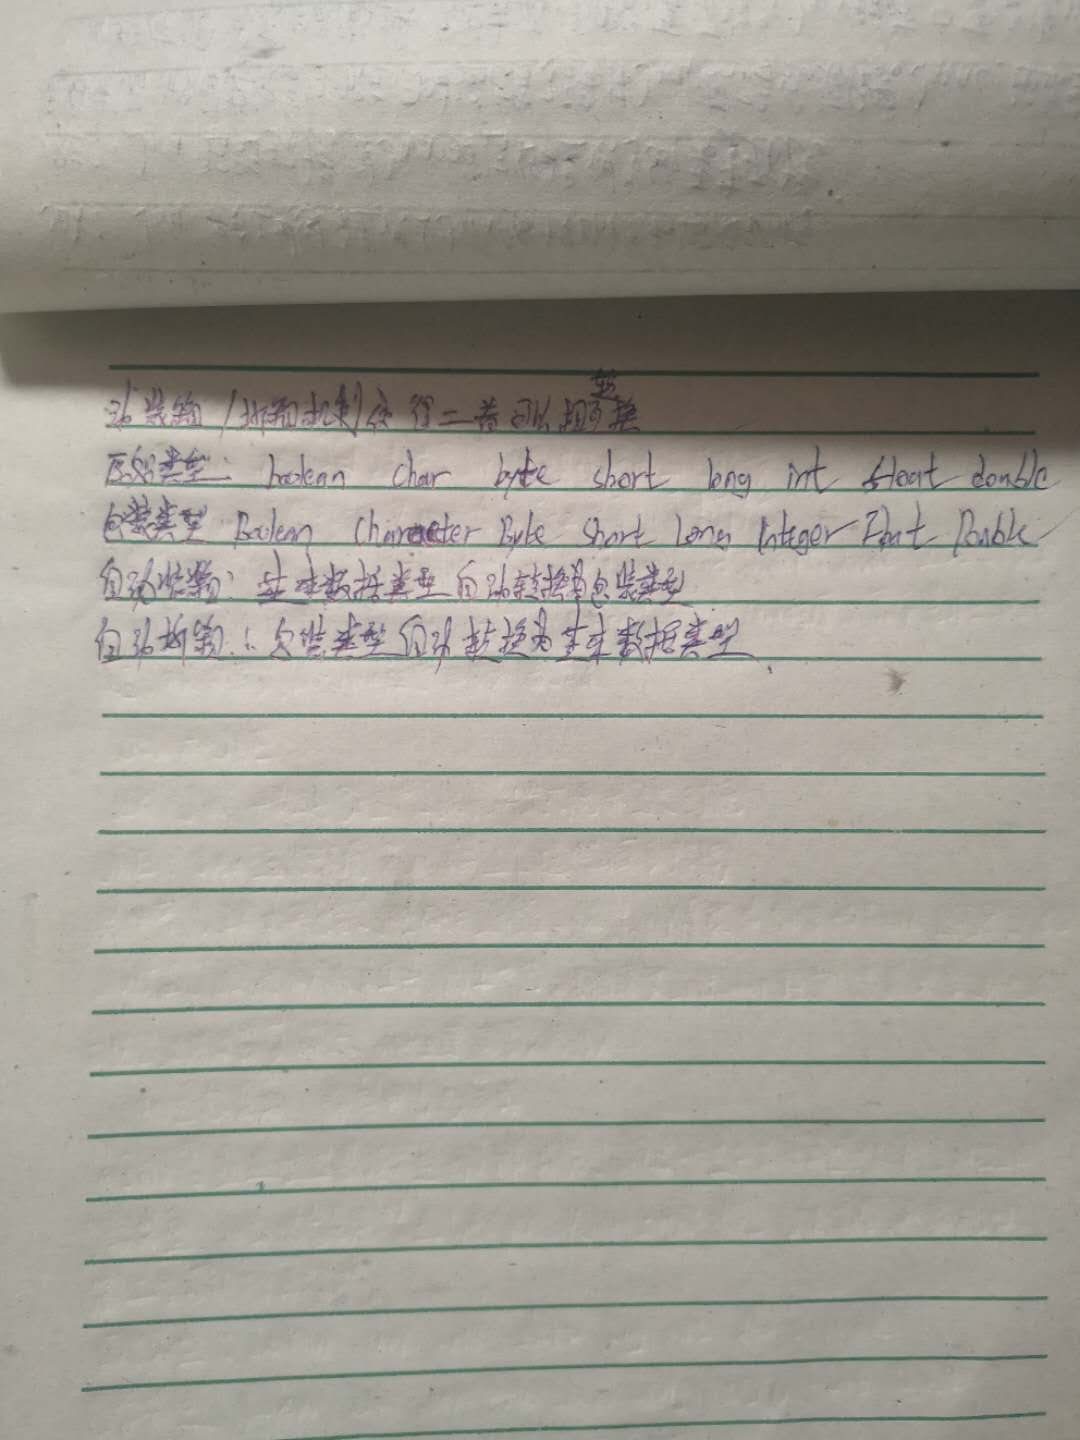 动装箱/拆箱机制使得二者可以相互转换
原始类型: boolean char byte short long int float double
包装类型 Boolean Character Byte Short Long Integer Float Double
自动装箱: 基本数据类型自动转换为包装类型
自动拆箱: 包装类型自动转换为基本数据类型